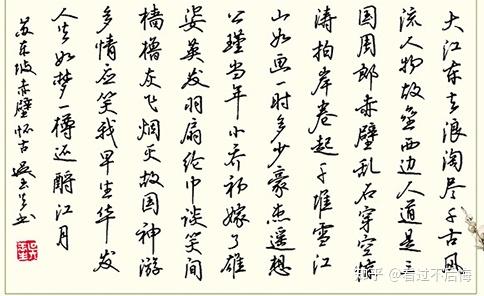 大江东去浪淘尽千古风
流人物故垒西边人道是三
国周郎赤壁乱石穿空惊
涛拍岸卷起千堆雪江
山如画一时多少豪杰遥想
公瑾当年小乔初嫁了雄
姿英发羽扇纶巾谈笑间
樯橹灰飞烟灭故国神游
多情应笑我早生华发
人生如梦一樽还酹江月
苏东坡赤壁怀古 吴玉生书
知乎 @看过不后海